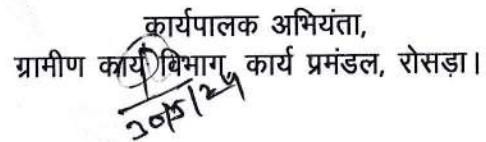 कार्यपालक अभियंता,
ग्रामीण कार्य विभाग, कार्य प्रमंडल, रोसड़ा।
30/5/24